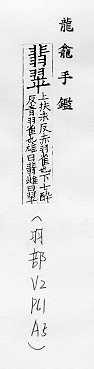 龍龕手鑑
翡翠
上扶未反赤羽雀也下七醉
反青羽雀也雄曰翡雌曰翠
(羽部 V2 P61 A5)